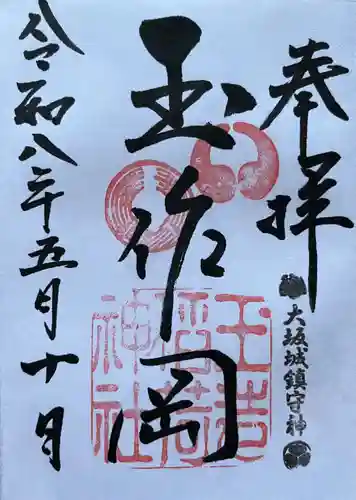 奉拝
大坂城鎮守神
玉作岡
玉造
稲荷
神社
令和八年五月十日